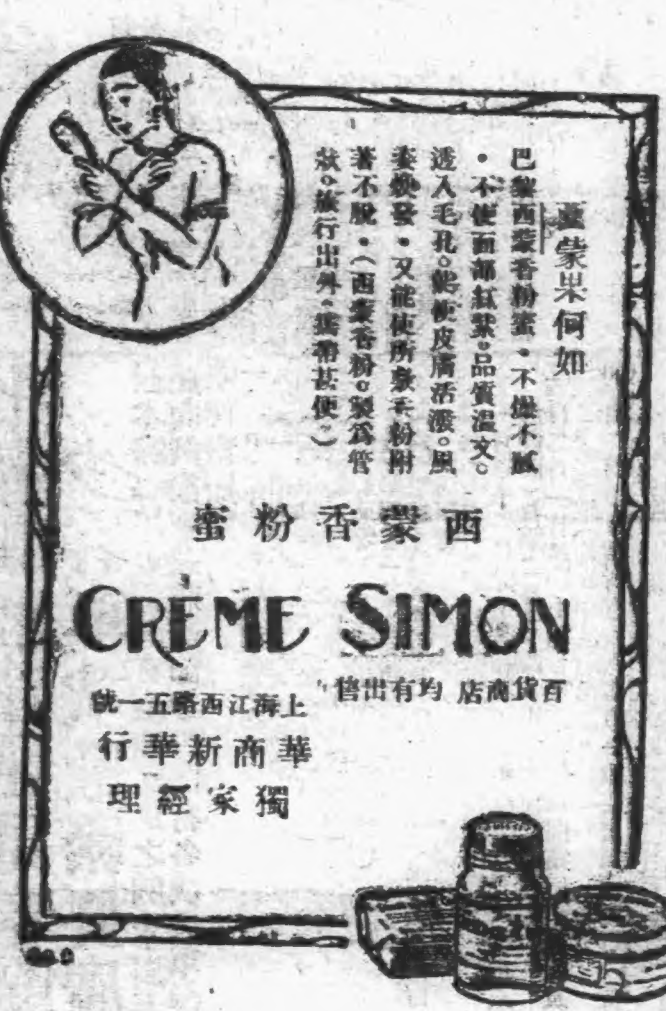 蒙果何如
巴黎西蒙香粉蜜。不燥不膩
。不使面部紅紫。品質溫文。
透入毛孔。能使皮膚活潑。風
姿煥發。又能使所敷香粉附
著不脫。(西蒙香粉。製爲管
狀。旅行出外。攜帶甚便。)
西蒙香粉蜜
CRÈME SIMON
百貨商店 均有出售
上海江西路五一號
華商新華行
獨家經理